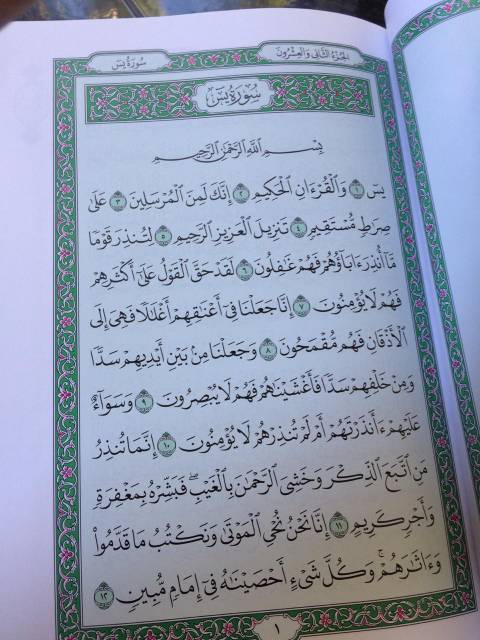 الجزء الثاني والعشرون
سورة يس
سورة يس
بسم الله الرحمن الرحيم
يسٓ ۝١ وَٱلْقُرْءَانِ ٱلْحَكِيمِ ۝٢ إِنَّكَ لَمِنَ ٱلْمُرْسَلِينَ ۝٣ عَلَىٰ
صِرَٰطٍ مُّسْتَقِيمٍ ۝٤ تَنزِيلَ ٱلْعَزِيزِ ٱلرَّحِيمِ ۝٥ لِتُنذِرَ قَوْمًا
مَّآ أُنذِرَ ءَابَآؤُهُمْ فَهُمْ غَٰفِلُونَ ۝٦ لَقَدْ حَقَّ ٱلْقَوْلُ عَلَىٰٓ أَكْثَرِهِمْ
فَهُمْ لَا يُؤْمِنُونَ ۝٧ إِنَّا جَعَلْنَا فِىٓ أَعْنَٰقِهِمْ أَغْلَٰلًا فَهِىَ إِلَى
ٱلْأَذْقَانِ فَهُم مُّقْمَحُونَ ۝٨ وَجَعَلْنَا مِنۢ بَيْنِ أَيْدِيهِمْ سَدًّا
وَمِنْ خَلْفِهِمْ سَدًّا فَأَغْشَيْنَٰهُمْ فَهُمْ لَا يُبْصِرُونَ ۝٩ وَسَوَآءٌ
عَلَيْهِمْ ءَأَنذَرْتَهُمْ أَمْ لَمْ تُنذِرْهُمْ لَا يُؤْمِنُونَ ۝١٠ إِنَّمَا تُنذِرُ
مَنِ ٱتَّبَعَ ٱلذِّكْرَ وَخَشِىَ ٱلرَّحْمَٰنَ بِٱلْغَيْبِ ۖ فَبَشِّرْهُ بِمَغْفِرَةٍ
وَأَجْرٍ كَرِيمٍ ۝١١ إِنَّا نَحْنُ نُحْىِ ٱلْمَوْتَىٰ وَنَكْتُبُ مَا قَدَّمُوا۟
وَءَاثَٰرَهُمْ ۚ وَكُلَّ شَىْءٍ أَحْصَيْنَٰهُ فِىٓ إِمَامٍ مُّبِينٍ ۝١٢
١